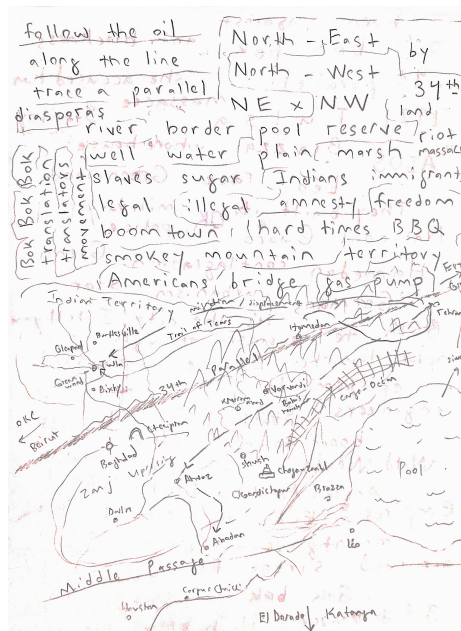 Follow the oil
along the line
trace a parallel
diasporas
North - East by
North - West 34th
NE x NW land
river border pool reserve riot
well water plain marsh massac
slaves sugar Indians immigrant
legal illegal amnesty freedom
boomtown hard times BBQ
smokey mountain territory
Americans bridge gas pump
Bok Bok Bok
translation
translators
movement
Indian Territory
migration displacement
Trail of Tears
Bartlesville
Glenpool
Tulsa
Bixby
OKC
Beirut
34th Parallel
Hamedan
Tehran
Ctesiphon
Baghdad
Zanj Uprising
Ahvaz
Shush
Choga Zanbil
Cargo Ocean
Pool
Abadan
Middle Passage
Houston
Corpus Christi
El Dorado
Katanga